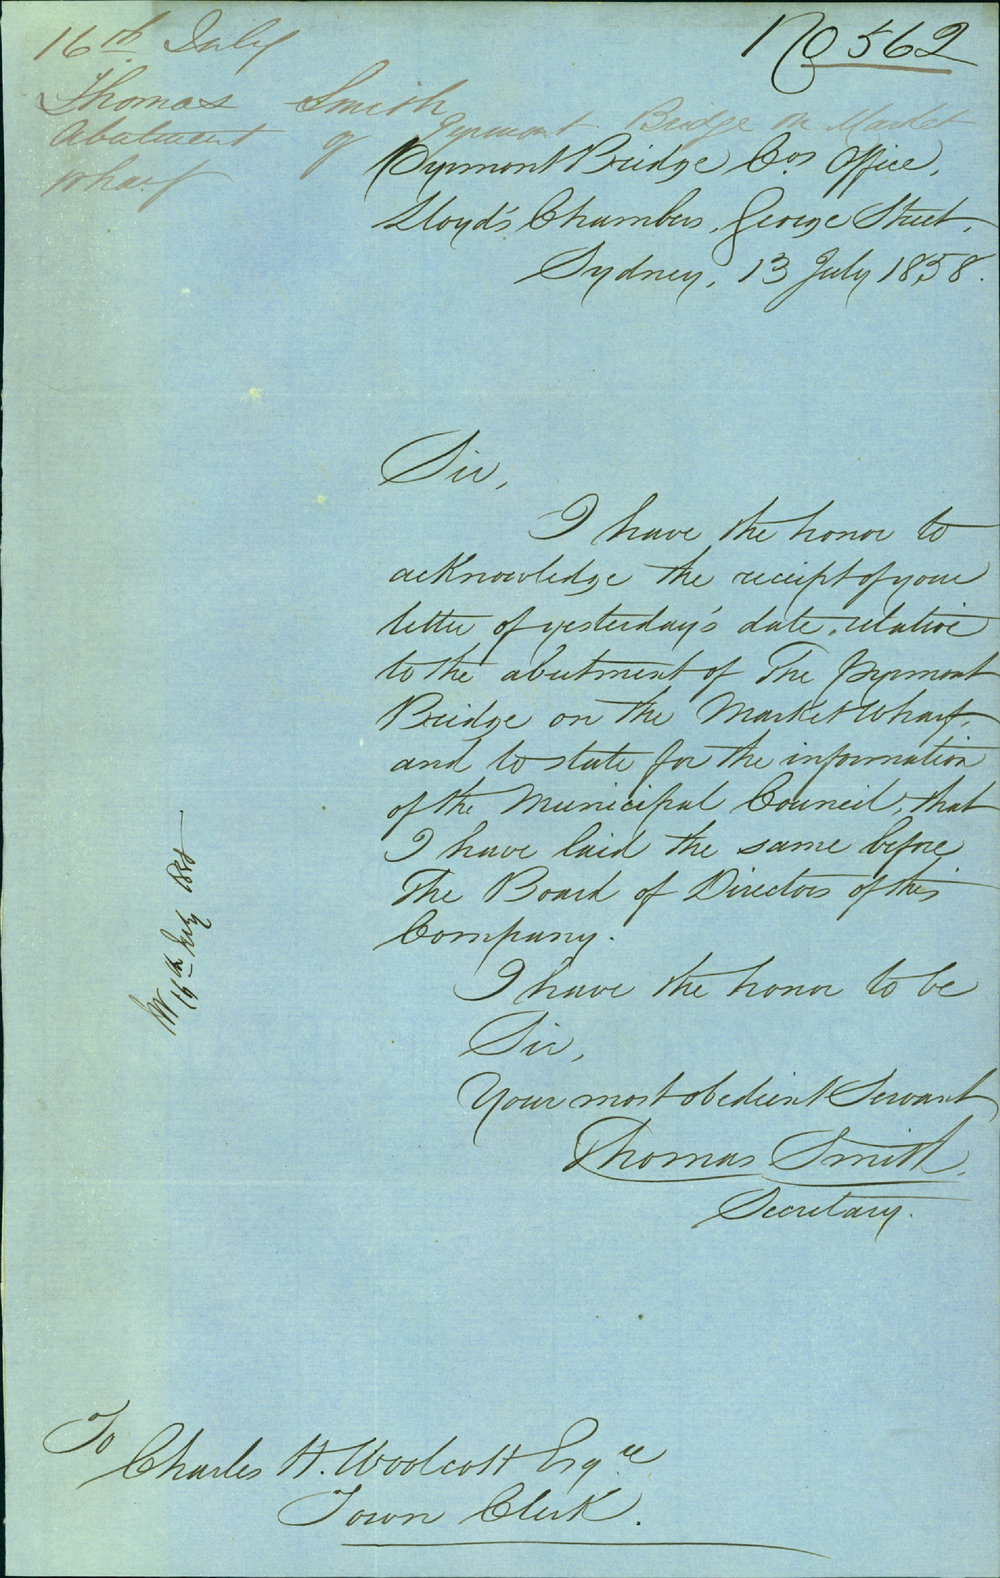 16th July
No 562
Thomas Smith
Abutment of Pyrmont Bridge on Market
Wharf
Pyrmont Bridge Cos Office,
Lloyd's Chambers, George Street,
Sydney, 13 July 1858.
Sir,
I have the honor to
acknowledge the receipt of your
letter of yesterday's date, relative
to the abutment of The Pyrmont
Bridge on the Market Wharf,
and to state for the information
of the Municipal Council, that
I have laid the same before
The Board of Directors of this
Company.
I have the honor to be
Sir,
Your most obedient Servant
Thomas Smith,
Secretary.
16th July 1858
To
Charles H. Woolcott Esqre
Town Clerk.